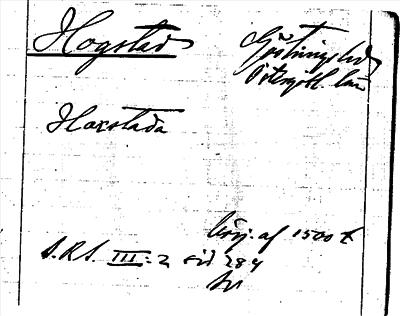 Hogstad
Göstrings hd
Östergötl. län
Haxstada
börj. af 1500 t
S.R.S. III:2 sid 284